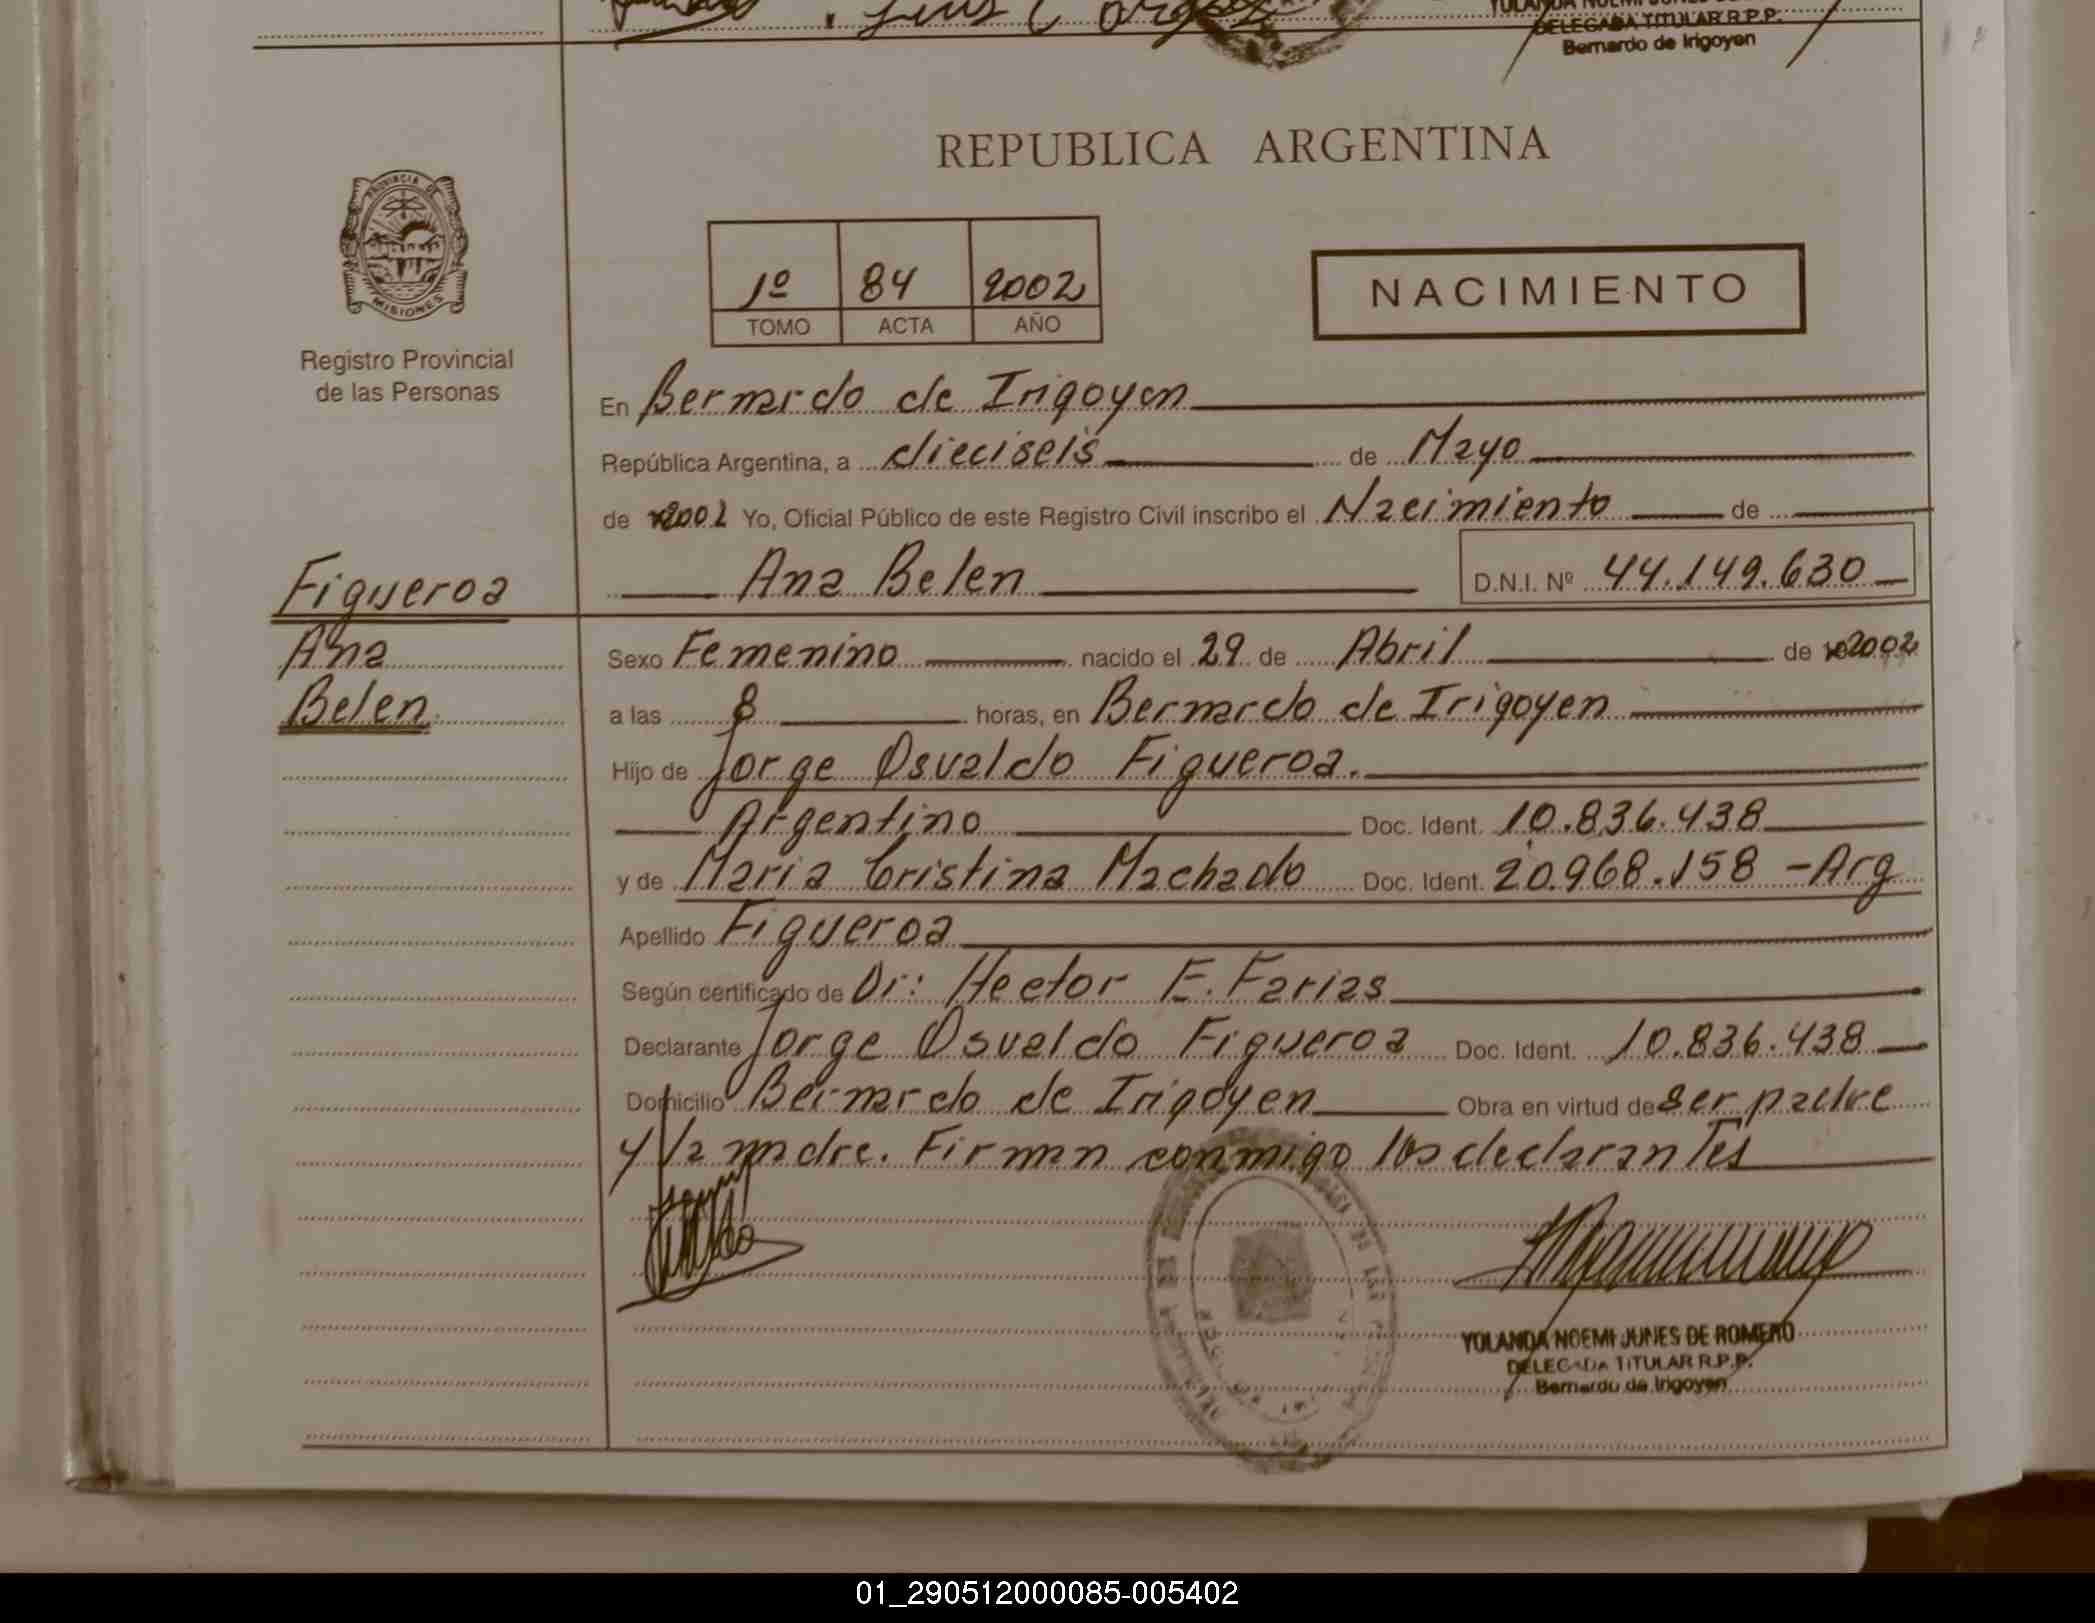 YOLANDA NOEMI JUNES DE
DELEGADA TITULAR R.P.P.
Bernardo de Irigoyen
REPUBLICA ARGENTINA
PROVINCIA DE
MISIONES
Registro Provincial
de las Personas
1º 84 2002
TOMO ACTA AÑO
NACIMIENTO
En Bernardo de Irigoyen
República Argentina, a dieciseis de Mayo
de 2002 Yo, Oficial Público de este Registro Civil inscribo el Nacimiento de
Ana Belen D.N.I. Nº 44.149.630
Figueroa
Ana
Belen
Sexo Femenino nacido el 29 de Abril de 2002
a las 8 horas, en Bernardo de Irigoyen
Hijo de Jorge Osvaldo Figueroa.
Argentino Doc. Ident. 10.836.438
y de Maria Cristina Machado Doc. Ident. 20.968.158 - Arg
Apellido Figueroa
Según certificado de Dr: Hector E. Farias
Declarante Jorge Osvaldo Figueroa Doc. Ident. 10.836.438
Domicilio Bernardo de Irigoyen Obra en virtud de ser padre
y la madre. Firman conmigo los declarantes
YOLANDA NOEMI JUNES DE ROMERO
DELEGADA TITULAR R.P.P.
Bernardo de Irigoyen
01_290512000085-005402